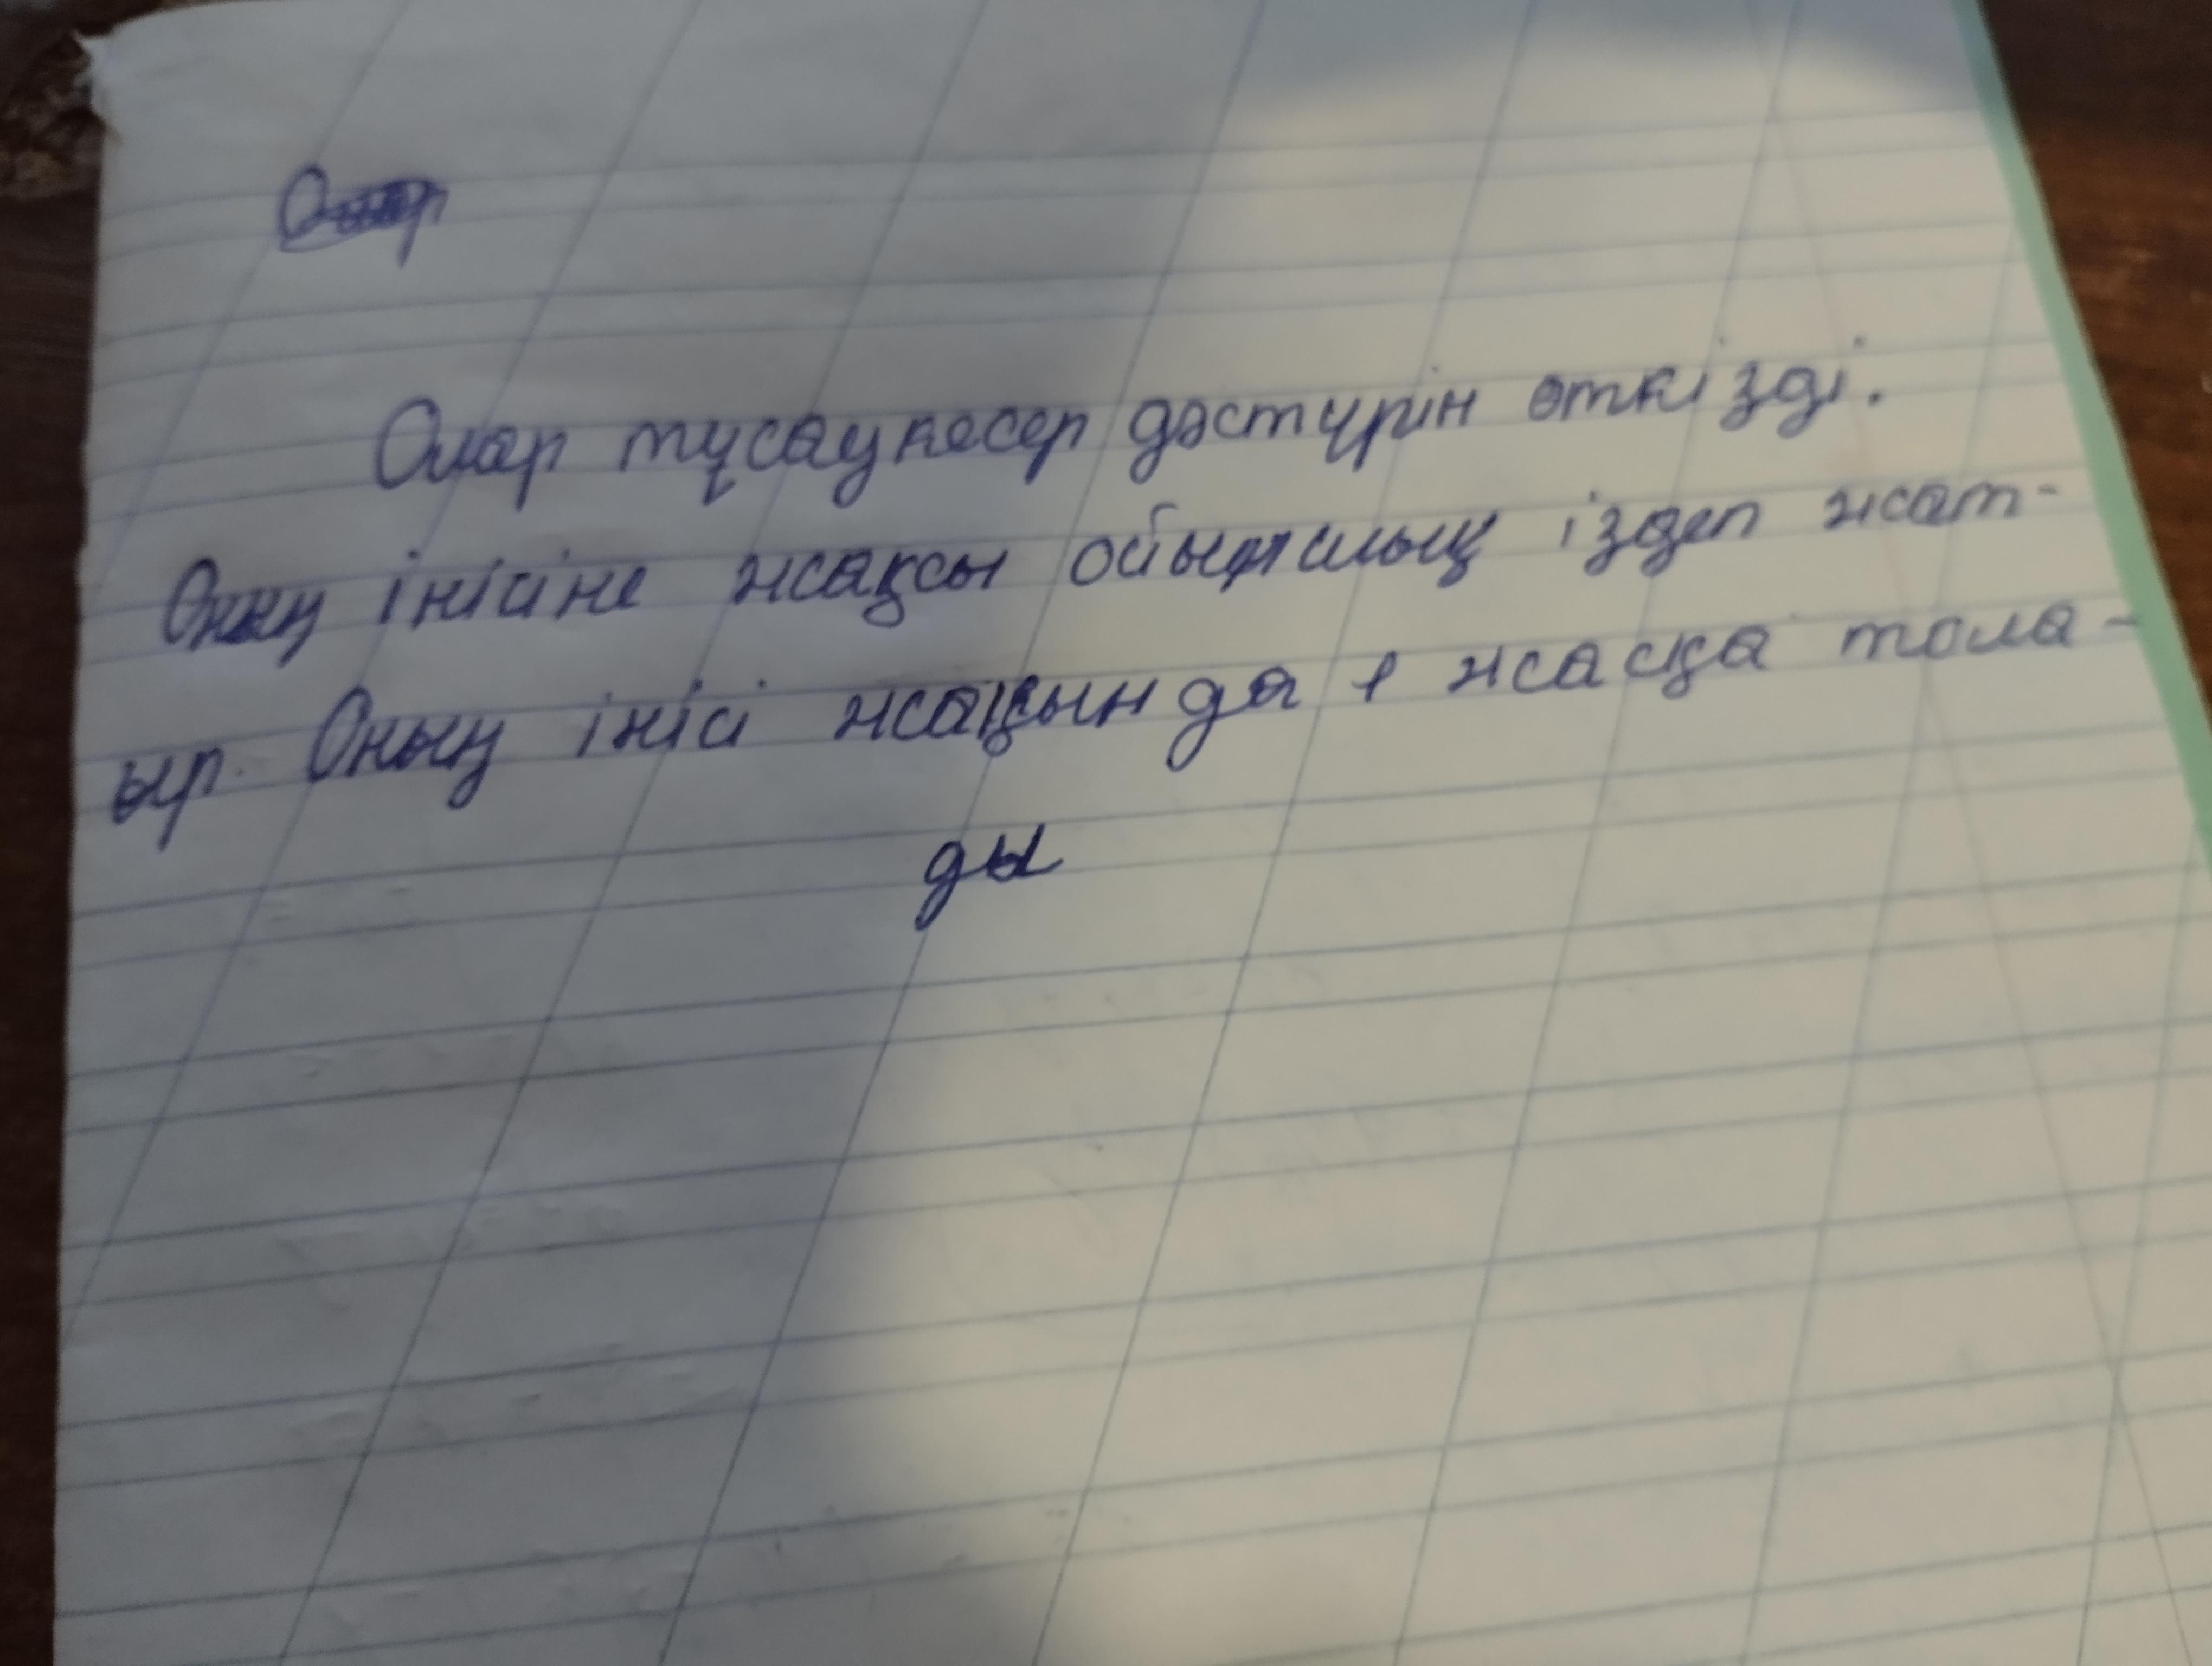 Олар тұсаукесер дәстүрін өткізді.
Оның інісіне жақсы ойыншық іздеп жат-
ыр. Оның інісі жақында 1 жасқа тола-
ды